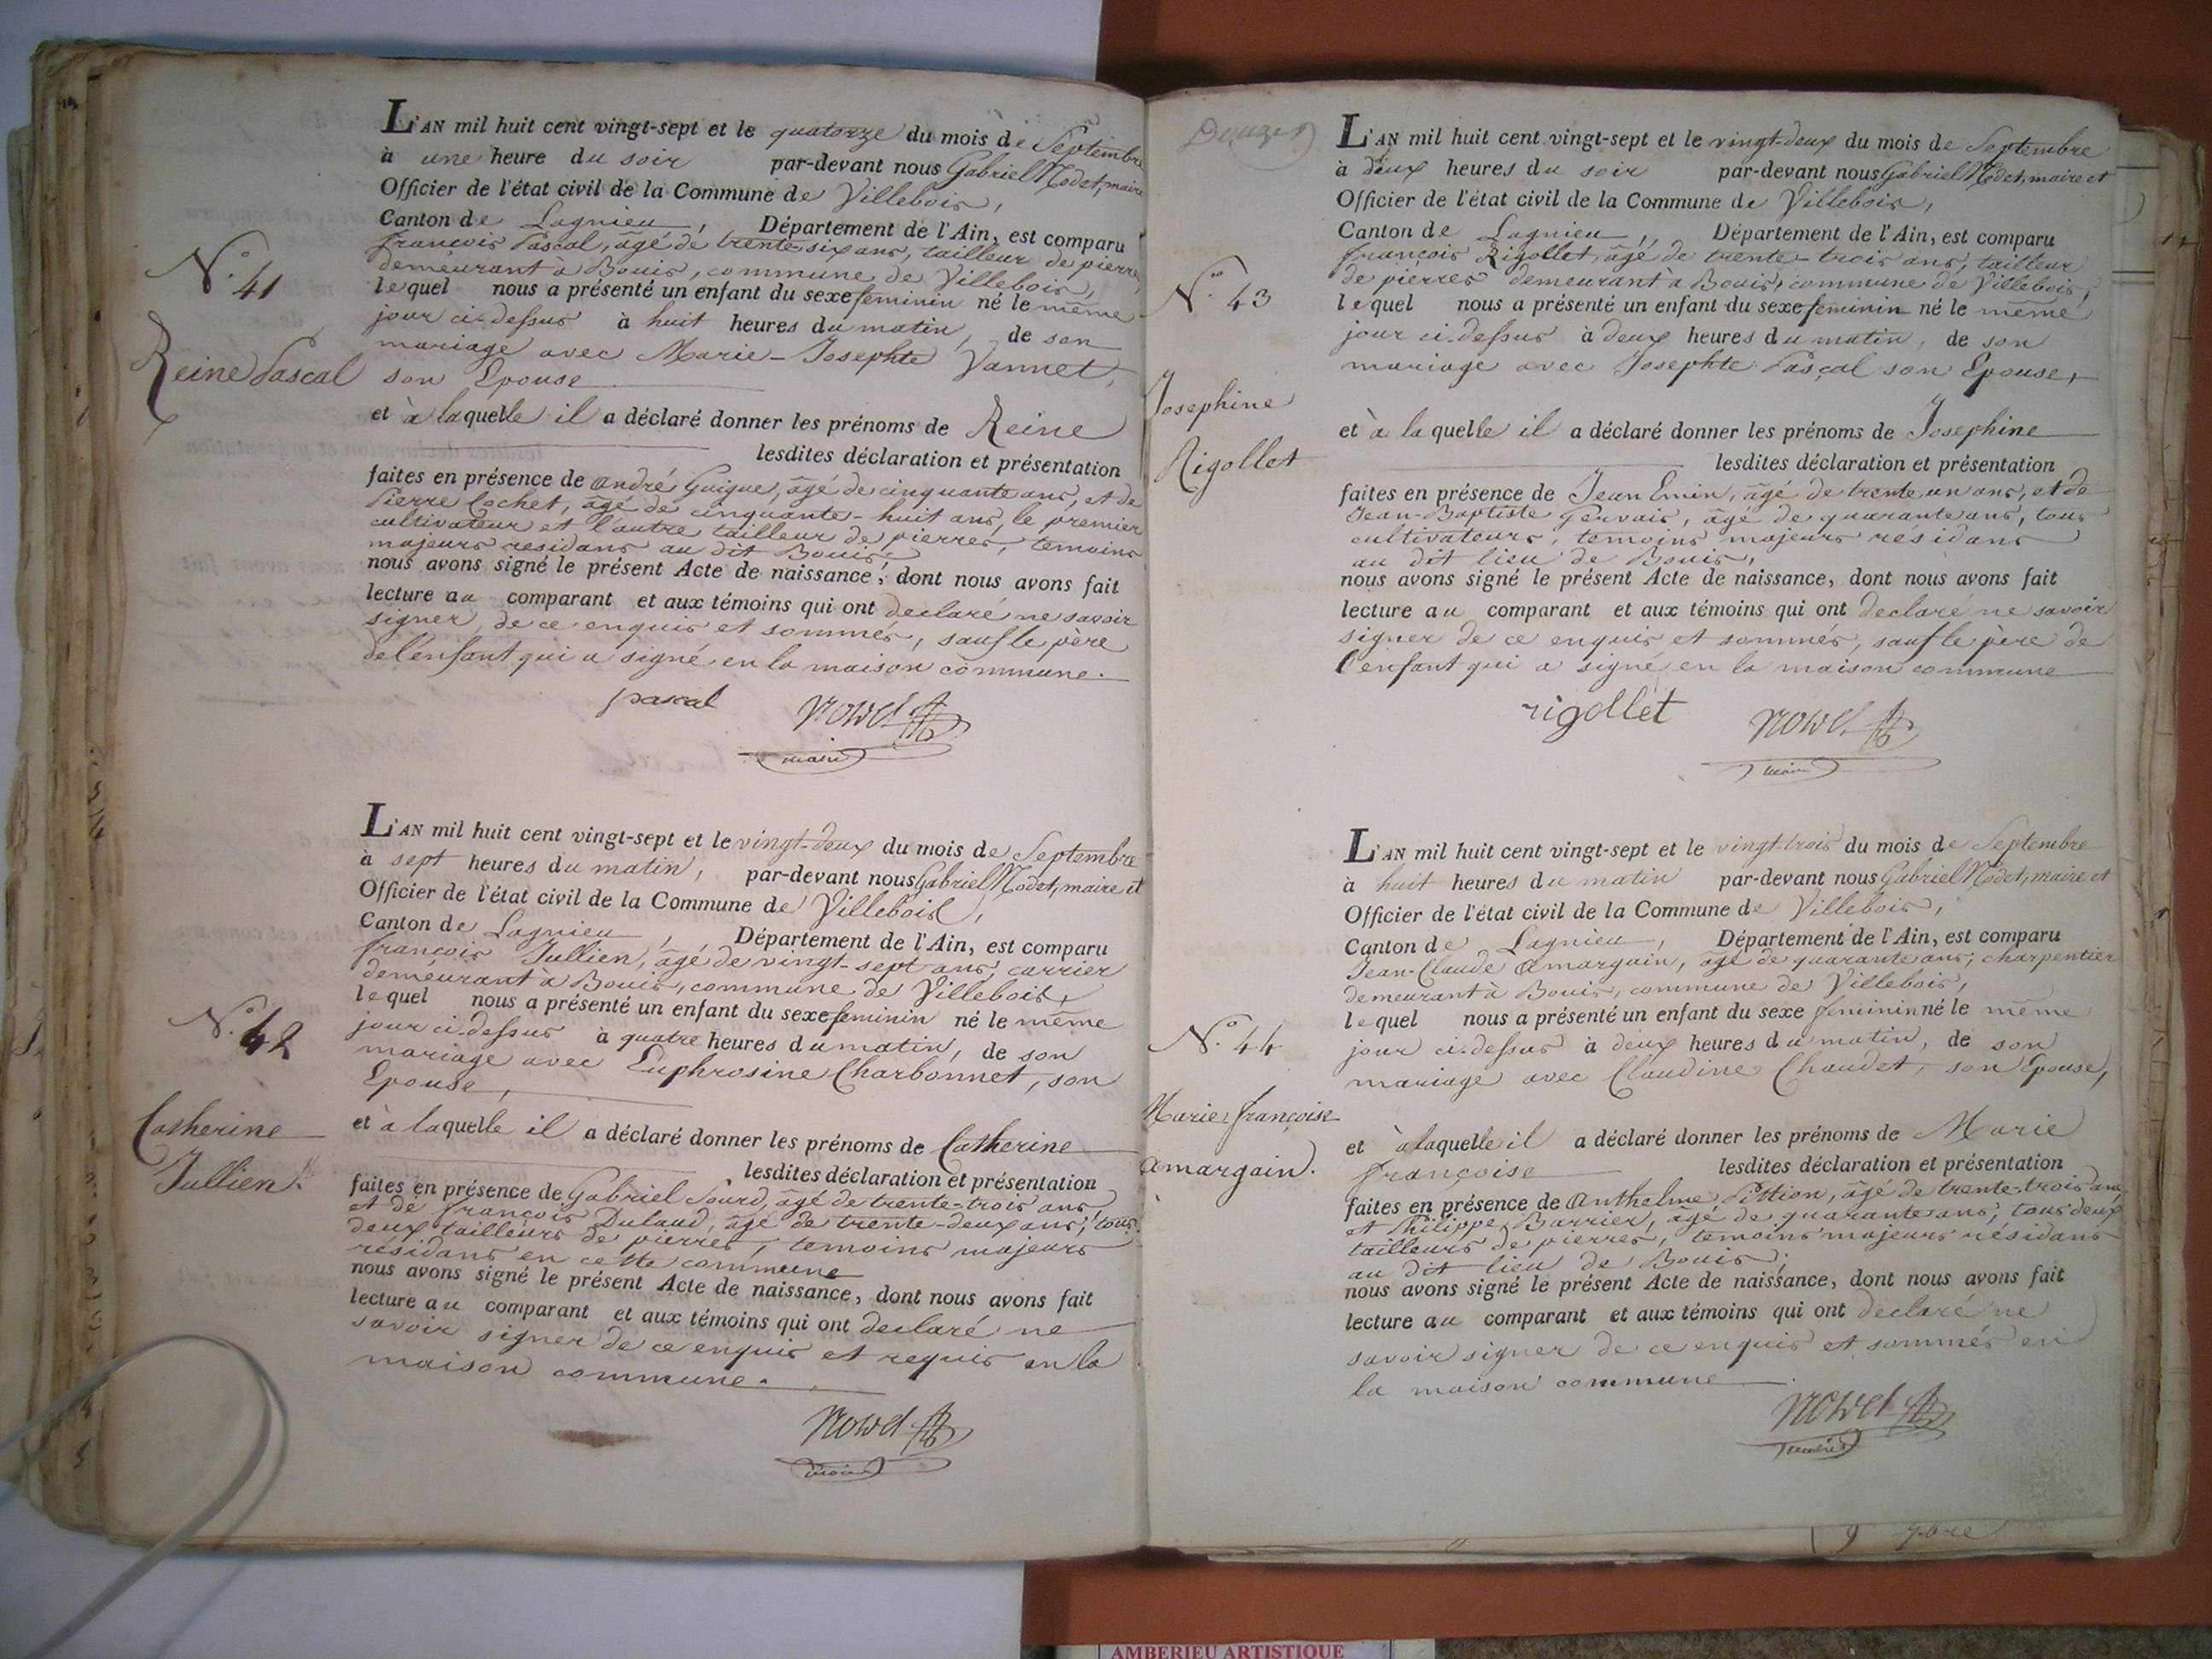 L'AN mil huit cent vingt-sept et le quatorze du mois de Septembre
à une heure du soir par-devant nous Gabriel Nodet, maire
Officier de l'état civil de la Commune de Villebois,
Canton de Lagnieu, Département de l'Ain, est comparu
françois Pascal, âgé de trente-six ans, tailleur de pierre
demeurant à Bouis, commune de Villebois,
N.º 41
lequel nous a présenté un enfant du sexe feminin né le même
jour ci-dessus à huit heures du matin, de son
mariage avec Marie-Josephte Vannet,
Reine Pascal
son Epouse
et à laquelle il a déclaré donner les prénoms de Reine
lesdites déclaration et présentation
faites en présence de André Guigue, âgé de cinquante ans, et de
Pierre Cochet, âgé de cinquante-huit ans, le premier
cultivateur et l'autre tailleur de pierres, temoins
majeurs residans au dit Bouis,
nous avons signé le présent Acte de naissance, dont nous avons fait
lecture au comparant et aux témoins qui ont declaré ne savoir
signer, de ce enquis et sommés, sauf le père
de l'enfant qui a signé en la maison commune.
pascal
maire
L'AN mil huit cent vingt-sept et le vingt-deux du mois de Septembre
à sept heures du matin, par-devant nous Gabriel Nodet, maire et
Officier de l'état civil de la Commune de Villebois,
Canton de Lagnieu, Département de l'Ain, est comparu
françois Jullien, âgé de vingt-sept ans, carrier
demeurant à Bouis, commune de Villebois,
N.º 42
lequel nous a présenté un enfant du sexe feminin né le même
jour ci-dessus à quatre heures du matin, de son
mariage avec Euphrosine Charbonnet, son
Epouse,
Catherine
Jullien.
et à laquelle il a déclaré donner les prénoms de Catherine
lesdites déclaration et présentation
faites en présence de Gabriel Sourd, âgé de trente-trois ans,
et de françois Dulaud, âgé de trente-deux ans, tous
deux tailleurs de pierres, temoins majeurs
résidans en cette commune
nous avons signé le présent Acte de naissance, dont nous avons fait
lecture au comparant et aux témoins qui ont declaré ne
savoir signer de ce enquis et requis en la
maison commune.
maire
L'AN mil huit cent vingt-sept et le vingt-deux du mois de Septembre
à deux heures du soir par-devant nous Gabriel Nodet, maire et
Officier de l'état civil de la Commune de Villebois,
Canton de Lagnieu, Département de l'Ain, est comparu
françois Rigollet, âgé de trente-trois ans, tailleur
de pierres demeurant à Bouis, commune de Villebois,
N.º 43
lequel nous a présenté un enfant du sexe feminin né le même
jour ci-dessus à deux heures du matin, de son
mariage avec Josephte Pascal son Epouse,
Josephine
Rigollet
et à laquelle il a déclaré donner les prénoms de Josephine
lesdites déclaration et présentation
faites en présence de Jean Emin, âgé de trente un ans, et de
Jean-Baptiste Gervais, âgé de quarante ans, tous
cultivateurs, temoins majeurs résidans
au dit lieu de Bouis,
nous avons signé le présent Acte de naissance, dont nous avons fait
lecture au comparant et aux témoins qui ont declaré ne savoir
signer de ce enquis et sommés, sauf le père de
l'enfant qui a signé en la maison commune
rigollet
maire
L'AN mil huit cent vingt-sept et le vingt-trois du mois de Septembre
à huit heures du matin par-devant nous Gabriel Nodet, maire et
Officier de l'état civil de la Commune de Villebois,
Canton de Lagnieu, Département de l'Ain, est comparu
Jean-Claude Amargain, âgé de quarante ans, charpentier
demeurant à Bouis, commune de Villebois,
N.º 44
lequel nous a présenté un enfant du sexe feminin né le même
jour ci-dessus à deux heures du matin, de son
mariage avec Claudine Chaudet, son Epouse,
Marie françoise
Amargain.
et à laquelle il a déclaré donner les prénoms de Marie
françoise lesdites déclaration et présentation
faites en présence de Anthelme Pittion, âgé de trente-trois ans,
et Philippe Barrier, âgé de quarante ans, tous deux
tailleurs de pierres, temoins majeurs résidans
au dit lieu de Bouis,
nous avons signé le présent Acte de naissance, dont nous avons fait
lecture au comparant et aux témoins qui ont declaré ne
savoir signer de ce enquis et sommés en
la maison commune
maire
9 7bre
AMBERIEU ARTISTIQUE